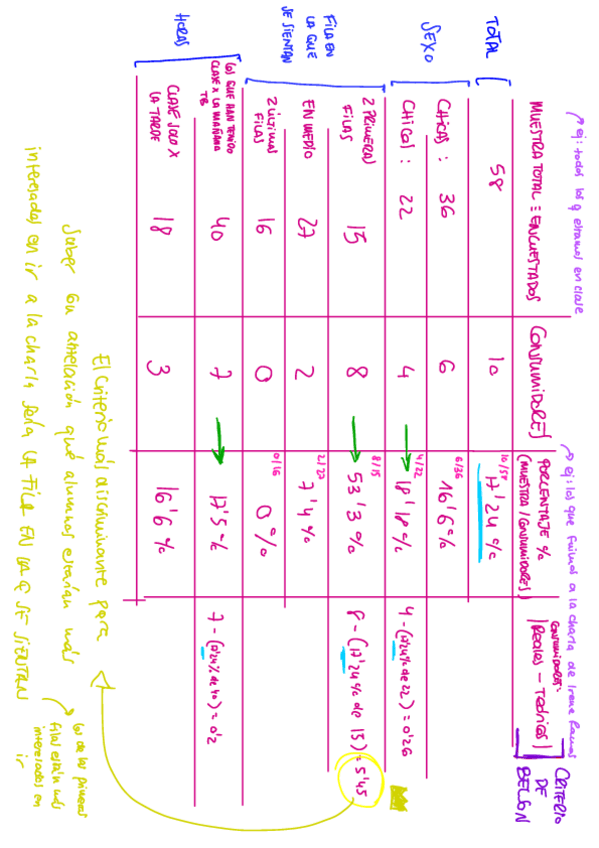 ej: todos los q estamos en clase
ej: los que fuimos a la charla de Irene Ramos
MUESTRA TOTAL = ENCUESTADOS
CONSUMIDORES
PORCENTAJE %
(MUESTRA / CONSUMIDORES)
CONSUMIDORES:
|Reales - Teóricos|
CRITERIO
DE
BELSON
TOTAL
58
10
10/58
17'24 %
SEXO
CHICAS : 36
6
6/36
16'6 %
CHICOS : 22
4
4/22
18'18 %
4 - (17'24% de 22) = 0'26
FILA EN
LA QUE
SE SIENTAN
2 PRIMERAS
FILAS
15
8
8/15
53'3 %
8 - (17'24 % de 15) = 5'45
EN MEDIO
27
2
2/27
7'4 %
2 ÚLTIMAS
FILAS
16
0
0/16
0 %
HORAS
LOS QUE HAN TENIDO
CLASE X LA MAÑANA
TB
40
7
17'5 %
7 - (17'24% de 40) = 0'2
CLASE SOLO X
LA TARDE
18
3
16'6 %
El criterio más discriminante para
saber con antelación qué alumnos estarían más
interesados en ir a la charla sería LA FILA EN LA Q SE SIENTAN
los de las primeras
filas están más
interesados en
ir